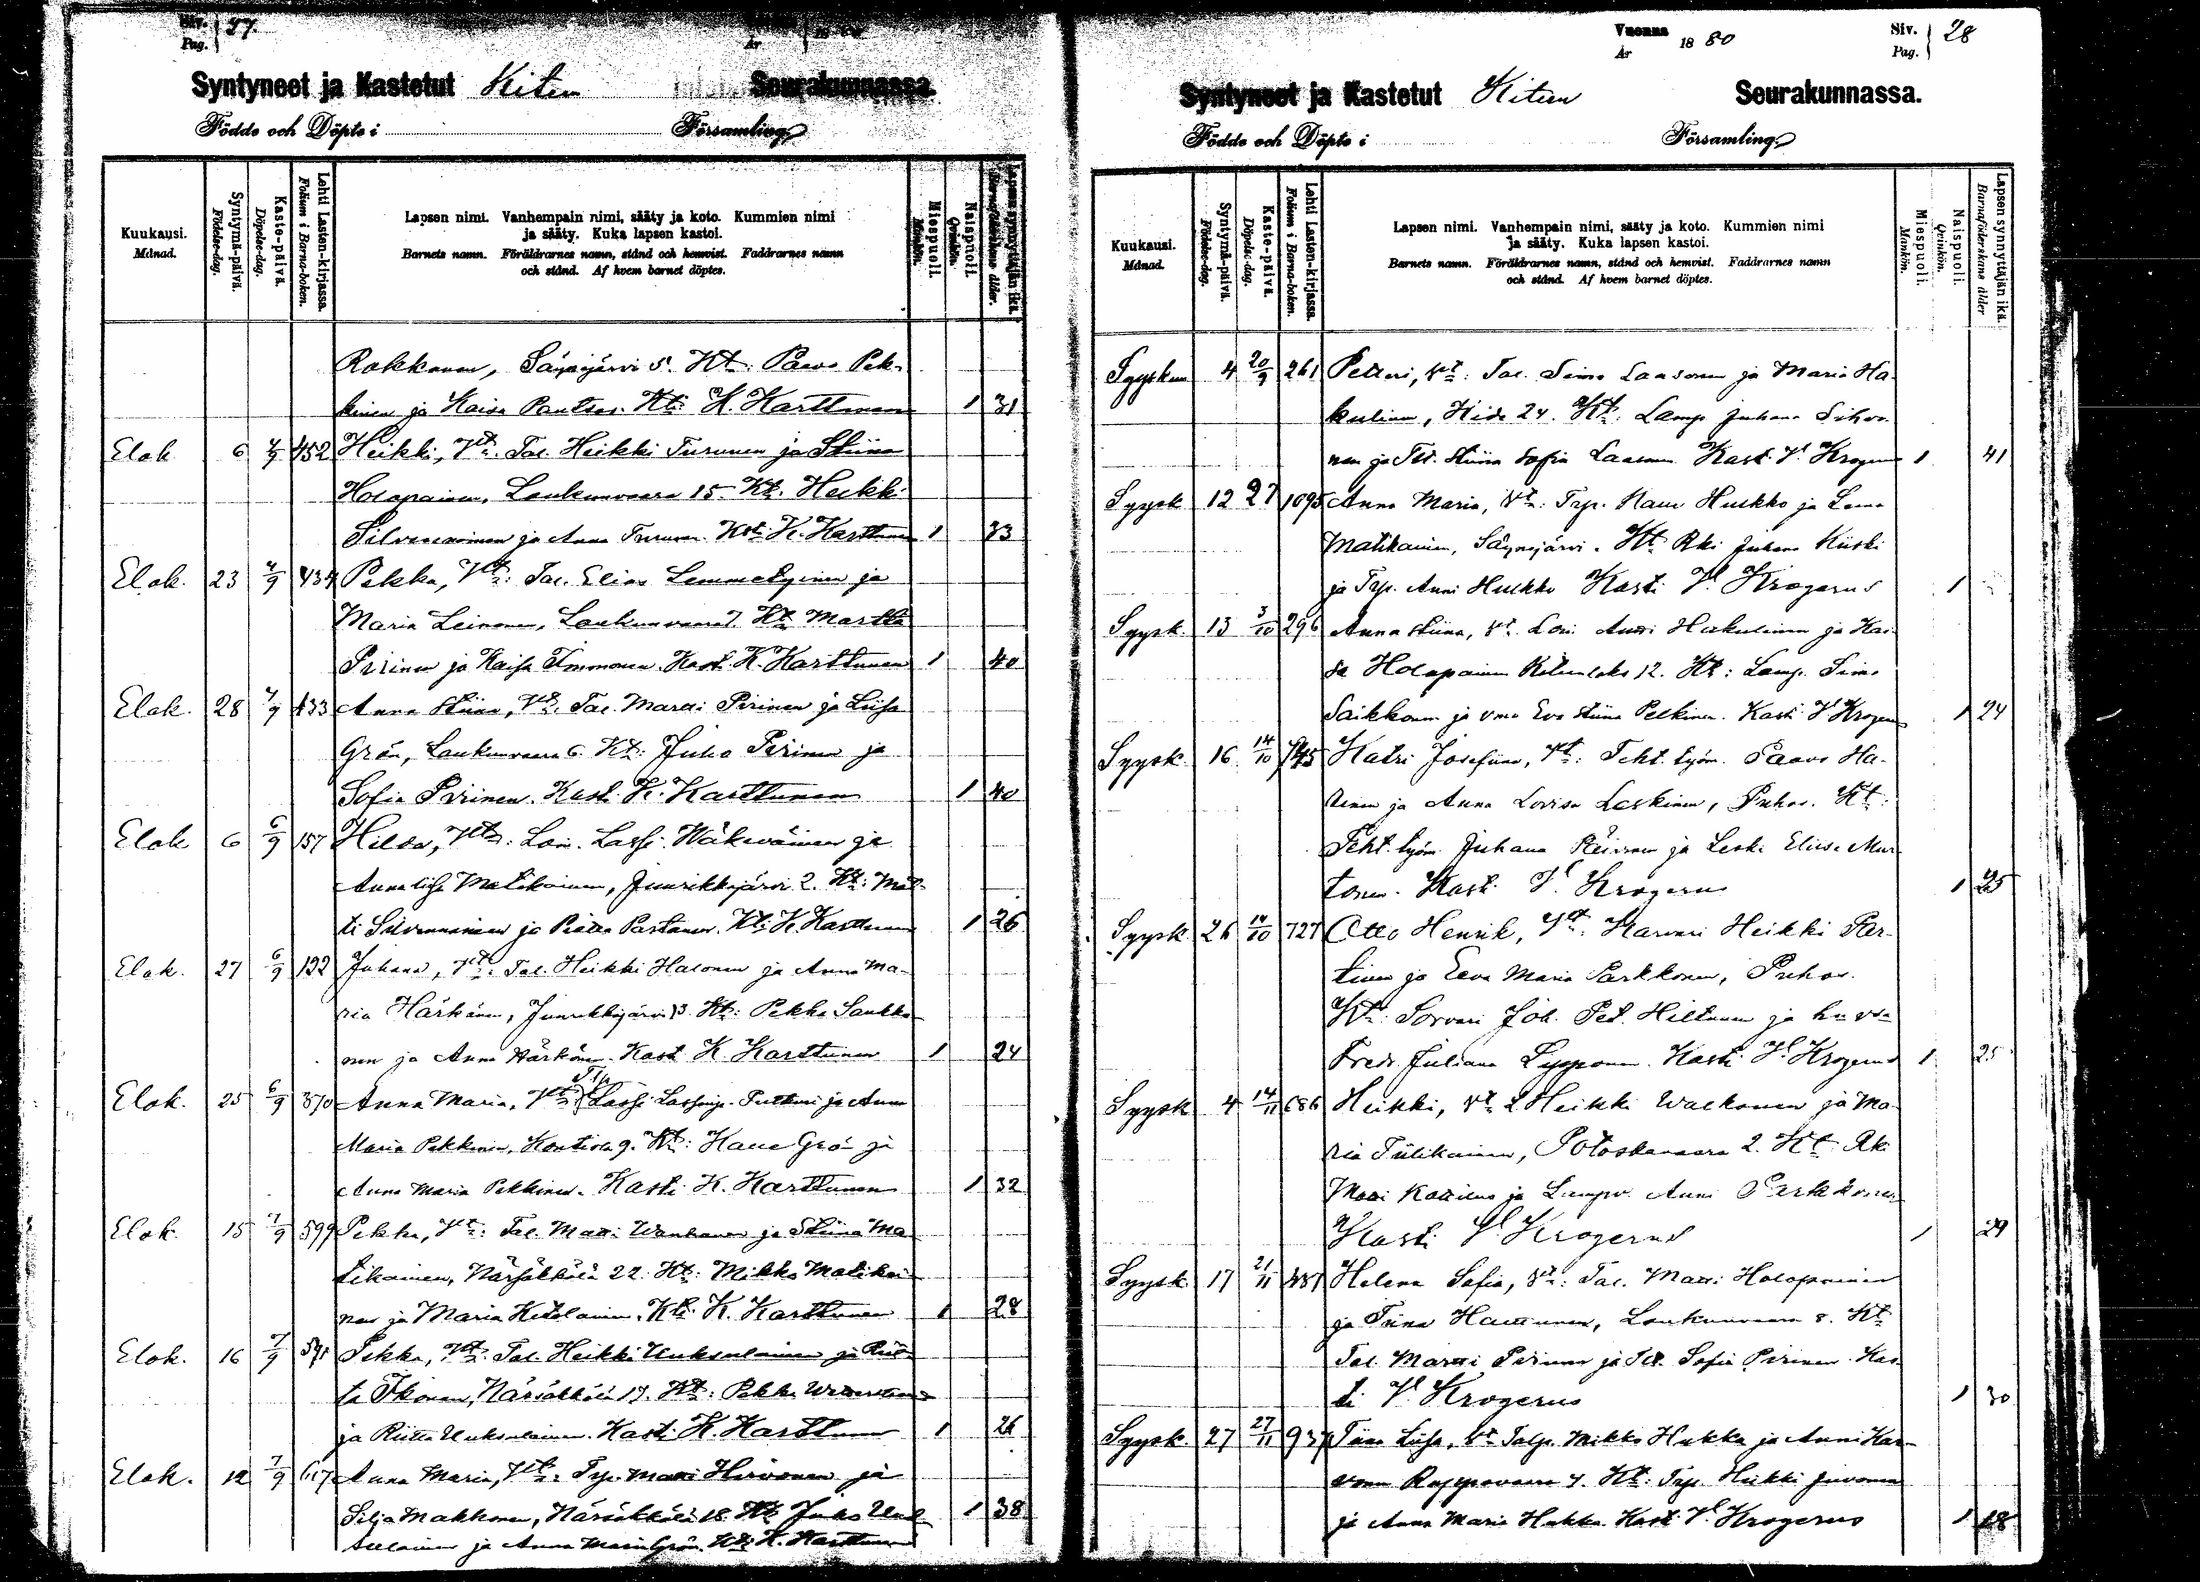 Siv. Pag. 27.
Syntyneet ja Kastetut Kiteen Seurakunnassa.
Födde och Döpte i Församling
Kuukausi. Månad.
Syntymä-päivä. Födelse-dag.
Kaste-päivä. Döpelse-dag.
Lehti Lasten-kirjassa. Folium i Barna-boken.
Lapsen nimi. Vanhempain nimi, sääty ja koto. Kummien nimi
ja sääty. Kuka lapsen kastoi.
Barnets namn. Föräldrarnes namn, stånd och hemvist. Faddrarnes namn
och stånd. Af hvem barnet döptes.
Miespuoli. Mankön.
Naispuoli. Qvinkön.
Lapsen synnyttäjän ikä. Barnaföderskans ålder.
Rokkanen, Säynejärvi 5. Kt: Paavo Pek-
kinen ja Kaisa Pantsar. Kti K. Karttunen 1 31
Elok 6 4/9 452 Heikki, Vt: Tal. Heikki Turunen ja Stiina
Holopainen, Loukunvaara 15 Kt. Heikki
Silvennoinen ja Anna Turunen. Kst: K. Karttunen 1 33
Elok. 23 4/9 434 Pekka, Vt: Tal. Elias Lemmetyinen ja
Maria Leinonen, Loukunvaara 7. Kt: Martti
Pirinen ja Kaisa Immonen. Kast. K. Karttunen 1 40
Elok. 28 4/9 433 Anna Stiina, Vt: Tal. Matti Pirinen ja Liisa
Grön, Loukunvaara 6. Kt: Juho Pirinen ja
Sofia Pirinen. Kasti K. Karttunen 1 40
Elok 6 6/9 157 Hilda, Vt: Loi. Lassi Wäkeväinen ja
Annaliisa Matikainen, Juurikkajärvi 2. Kt: Mat-
ti Silvennoinen ja Partanen. Kti K. Karttunen 1 26
Elok. 27 6/9 122 Juhana, Vt: Tal. Heikki Halonen ja Anna Ma-
ria Härkönen, Juurikkajärvi 13. Kt: Pekka Saukko-
nen ja Anna Härkönen. Kast K. Karttunen 1 24
Elok. 25 6/9 370 Anna Maria, Vt: Lassi Lassinp. ja Anna
Maria Pekkinen, Kontiola 9. Kt: Grön ja
Anna Maria Pekkinen. Kasti K. Karttunen 1 32
Elok. 15 7/9 599 Pekka, Vt: Tal. Matti Wanhanen ja Stiina Ma-
tikainen, Närsäkkälä 22. Kt: Mikko Matikai-
nen ja Maria Ketolainen. Kti K. Karttunen 1 28
Elok. 16 7/9 Pekka, Vt: Tal. Heikki Uuksulainen ja Riit-
ta Ikonen, Närsäkkälä 17. Kt: Pekka
ja Riitta Uuksulainen. Kasti K. Karttunen 1 26
Elok. 12 7/9 617 Anna Maria, Vt: Trp. Matti Hirvonen ja
Silja Makkonen, Närsäkkälä 18. Kt. Juho Uuk-
sulainen ja Anna Maria Grön. Kti K. Karttunen 1 38
Vuonna År 1880
Siv. Pag. 28
Syntyneet ja Kastetut Kiteen Seurakunnassa.
Födde och Döpte i Församling
Kuukausi. Månad.
Syntymä-päivä. Födelse-dag.
Kaste-päivä. Döpelse-dag.
Lehti Lasten-kirjassa. Folium i Barna-boken.
Lapsen nimi. Vanhempain nimi, sääty ja koto. Kummien nimi
ja sääty. Kuka lapsen kastoi.
Barnets namn. Föräldrarnes namn, stånd och hemvist. Faddrarnes namn
och stånd. Af hvem barnet döptes.
Miespuoli. Mankön.
Naispuoli. Qvinkön.
Lapsen synnyttäjän ikä. Barnaföderskans ålder
Syyskuu 4 20/9 261 Petteri, Vt: Tal. Simo Laasonen ja Maria Ha-
kulinen, Hide 24. Kt: Lamp. Juhana Sihvo-
nen ja Tlt. Stiina Sofia Laasonen. Kast. V. Krogerus 1 41
Syysk 12 27 1095 Anna Maria, Vt: Trp. Huikko ja Leena
Matikainen, Säynejärvi. Kt: Rki Juhana Kiiski
ja Trp. Anni Huikko Kasti V. Krogerus 1
Syysk. 13 3/10 296 Anna Stiina, Vt: Loi. Antti Hakulinen ja Kai-
sa Holopainen Kiteenlaks 12. Kt: Lamp. Simo
Saikkonen ja vmo Eva Stiina Pekkinen. Kasti V Krogerus 1 24
Syysk. 16 14/10 745 Katri Josefiina, Vt: Teht. työm. Paavo Ha-
ja Anna Lovisa Leskinen, Puhos. Kt:
Teht. työm. Juhana Räisänen ja Leski Eliisa Mus-
tonen. Kast. V. Krogerus 1 25
Syysk. 26 14/10 727 Otto Henrik, Vt: Karvari Heikki Par-
tinen ja Eeva Maria Parkkonen, Puhos.
Kt: Sorvari Joh. Pet. Hiltunen ja
Fredr. Juliana Lypponen. Kasti V. Krogerus 1 25
Syysk 4 14/11 686 Heikki, Vt: L Heikki Walkonen ja Ma-
ria Tiilikainen, Potoskavaara 2. Kt: Rk.
ja Lampv. Anni Parkkonen
Kasti V. Krogerus 1 29
Syysk 17 21/11 437 Helena Sofia, Vt: Tal. Matti Holopainen
ja Tiina Hattunen, Loukunvaara 8. Kt:
Tal. Matti Pirinen ja Tlt. Sofia Pirinen. Kas-
ti V. Krogerus 1 30
Syysk. 27 27/11 937 Tiina Liisa, Vt: Talp. Mikko Hukka ja Anni Kar-
vonen Raspovaara 4. Kt: Trp. Heikki Juvonen
ja Anna Maria Hukka. Kasti V. Krogerus 1 18